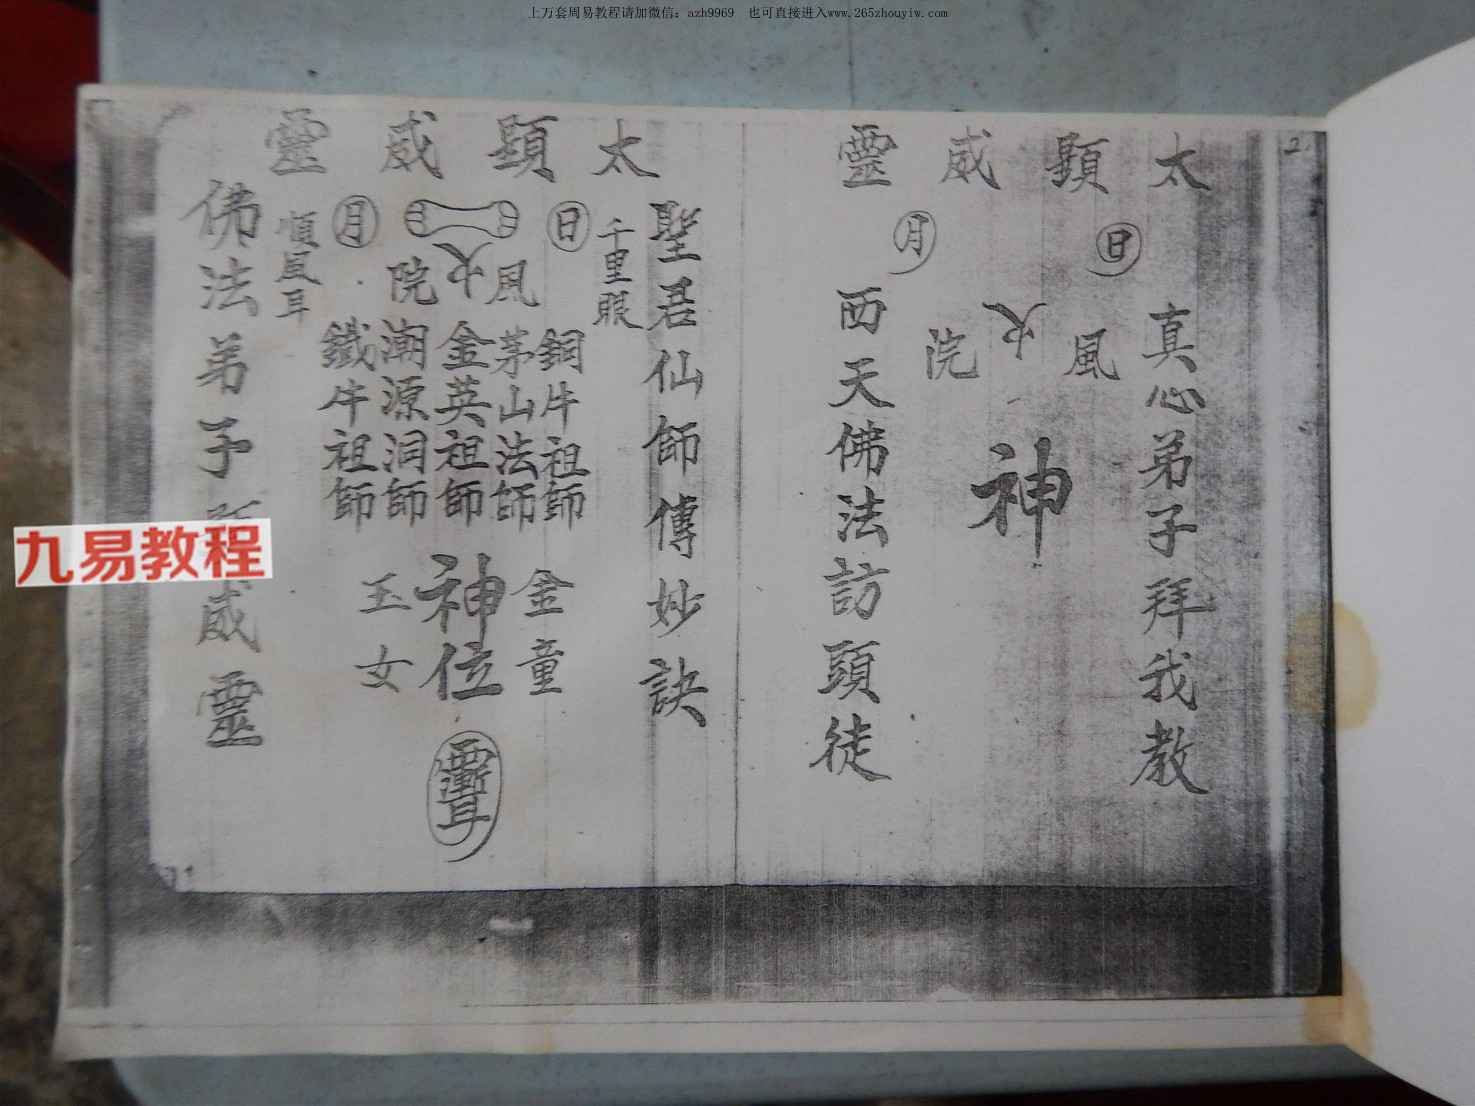 上万套周易教程请加微信：azh9969 也可直接进入www.265zhouyiw.com
2
太顕威靈
日
月
真心弟子拜我教
風火浣
神
西天佛法訪頭徒
太顕威靈
聖君仙師傳妙訣
千里眼
日
月
順風耳
風火院
銅牛祖師
茅山法師
金英祖師
潮源洞師
鐵牛祖師
金童
神位
玉女
佛法弟子
威靈
九易教程